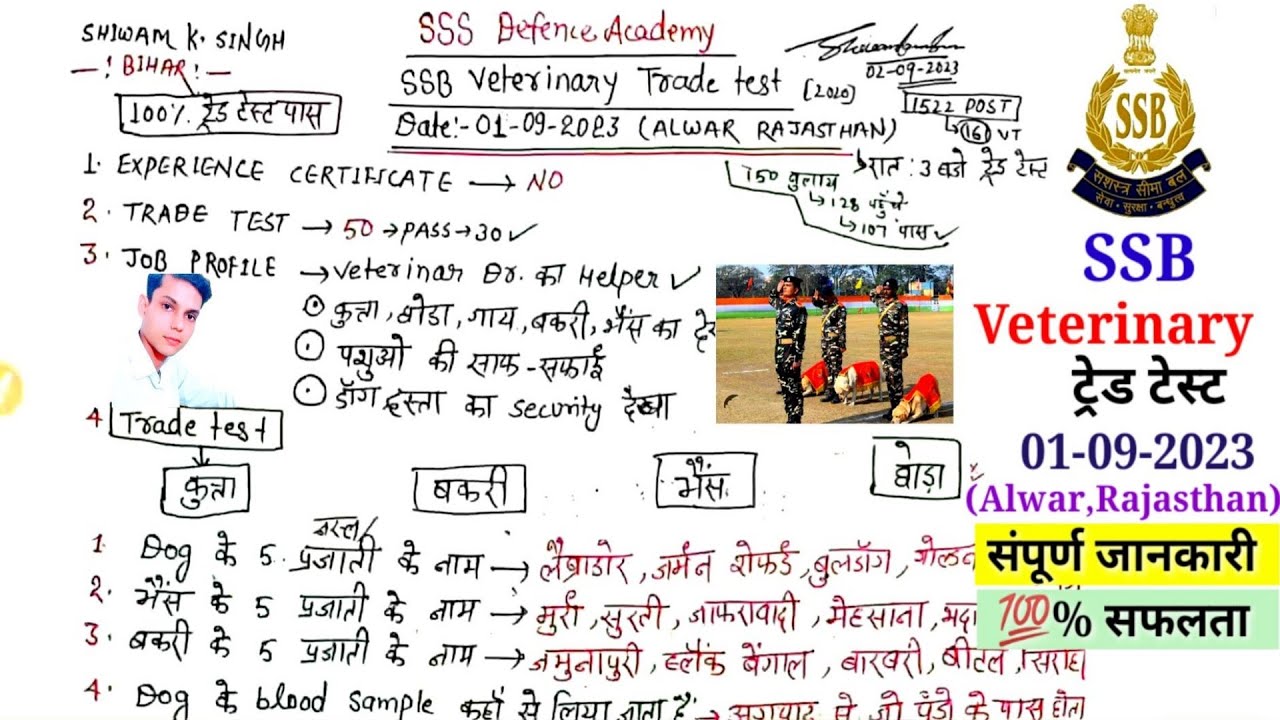 SHIWAM K. SINGH
—! BIHAR! —
100% ट्रेड टेस्ट पास
SSS Defence Academy
SSB Veterinary Trade test [2020]
Date:-01-09-2023 (ALWAR RAJASTHAN)
02-09-2023
1522 POST
↳ 161 VT
↳ रात: 3 बजे ट्रेड टेस्ट
150 बुलाय
↳ 128 पहुँचे
↳ 107 पास ✓
1. EXPERIENCE CERTIFICATE → NO
2. TRADE TEST → 50 → PASS → 30 ✓
3. JOB PROFILE → Veterinar Dr. का Helper ✓
कुत्ता, घोडा, गाय, बकरी, भैंस का
पशुओ की साफ-सफाई
डॉग दस्ता का security देखा
4 Trade test
कुत्ता बकरी भैंस घोड़ा
नस्ल/
1. Dog के 5 प्रजाती के नाम → लैब्राडोर, जर्मन शेफर्ड, बुलडॉग,
2. भैंस के 5 प्रजाती के नाम → मुर्रा, सुरती, जाफरावादी, मेहसाना,
3. बकरी के 5 प्रजाती के नाम → जमुनापुरी, ब्लैक बेंगाल, बारबरी, बीटल,
4. Dog के blood sample कहाँ से लिया जाता है → अग्रपाद से जो पंजे के पास होता
SSB
सशस्त्र सीमा बल
सेवा • सुरक्षा • बन्धुत्व
SSB
Veterinary
ट्रेड टेस्ट
01-09-2023
(Alwar,Rajasthan)
संपूर्ण जानकारी
💯% सफलता